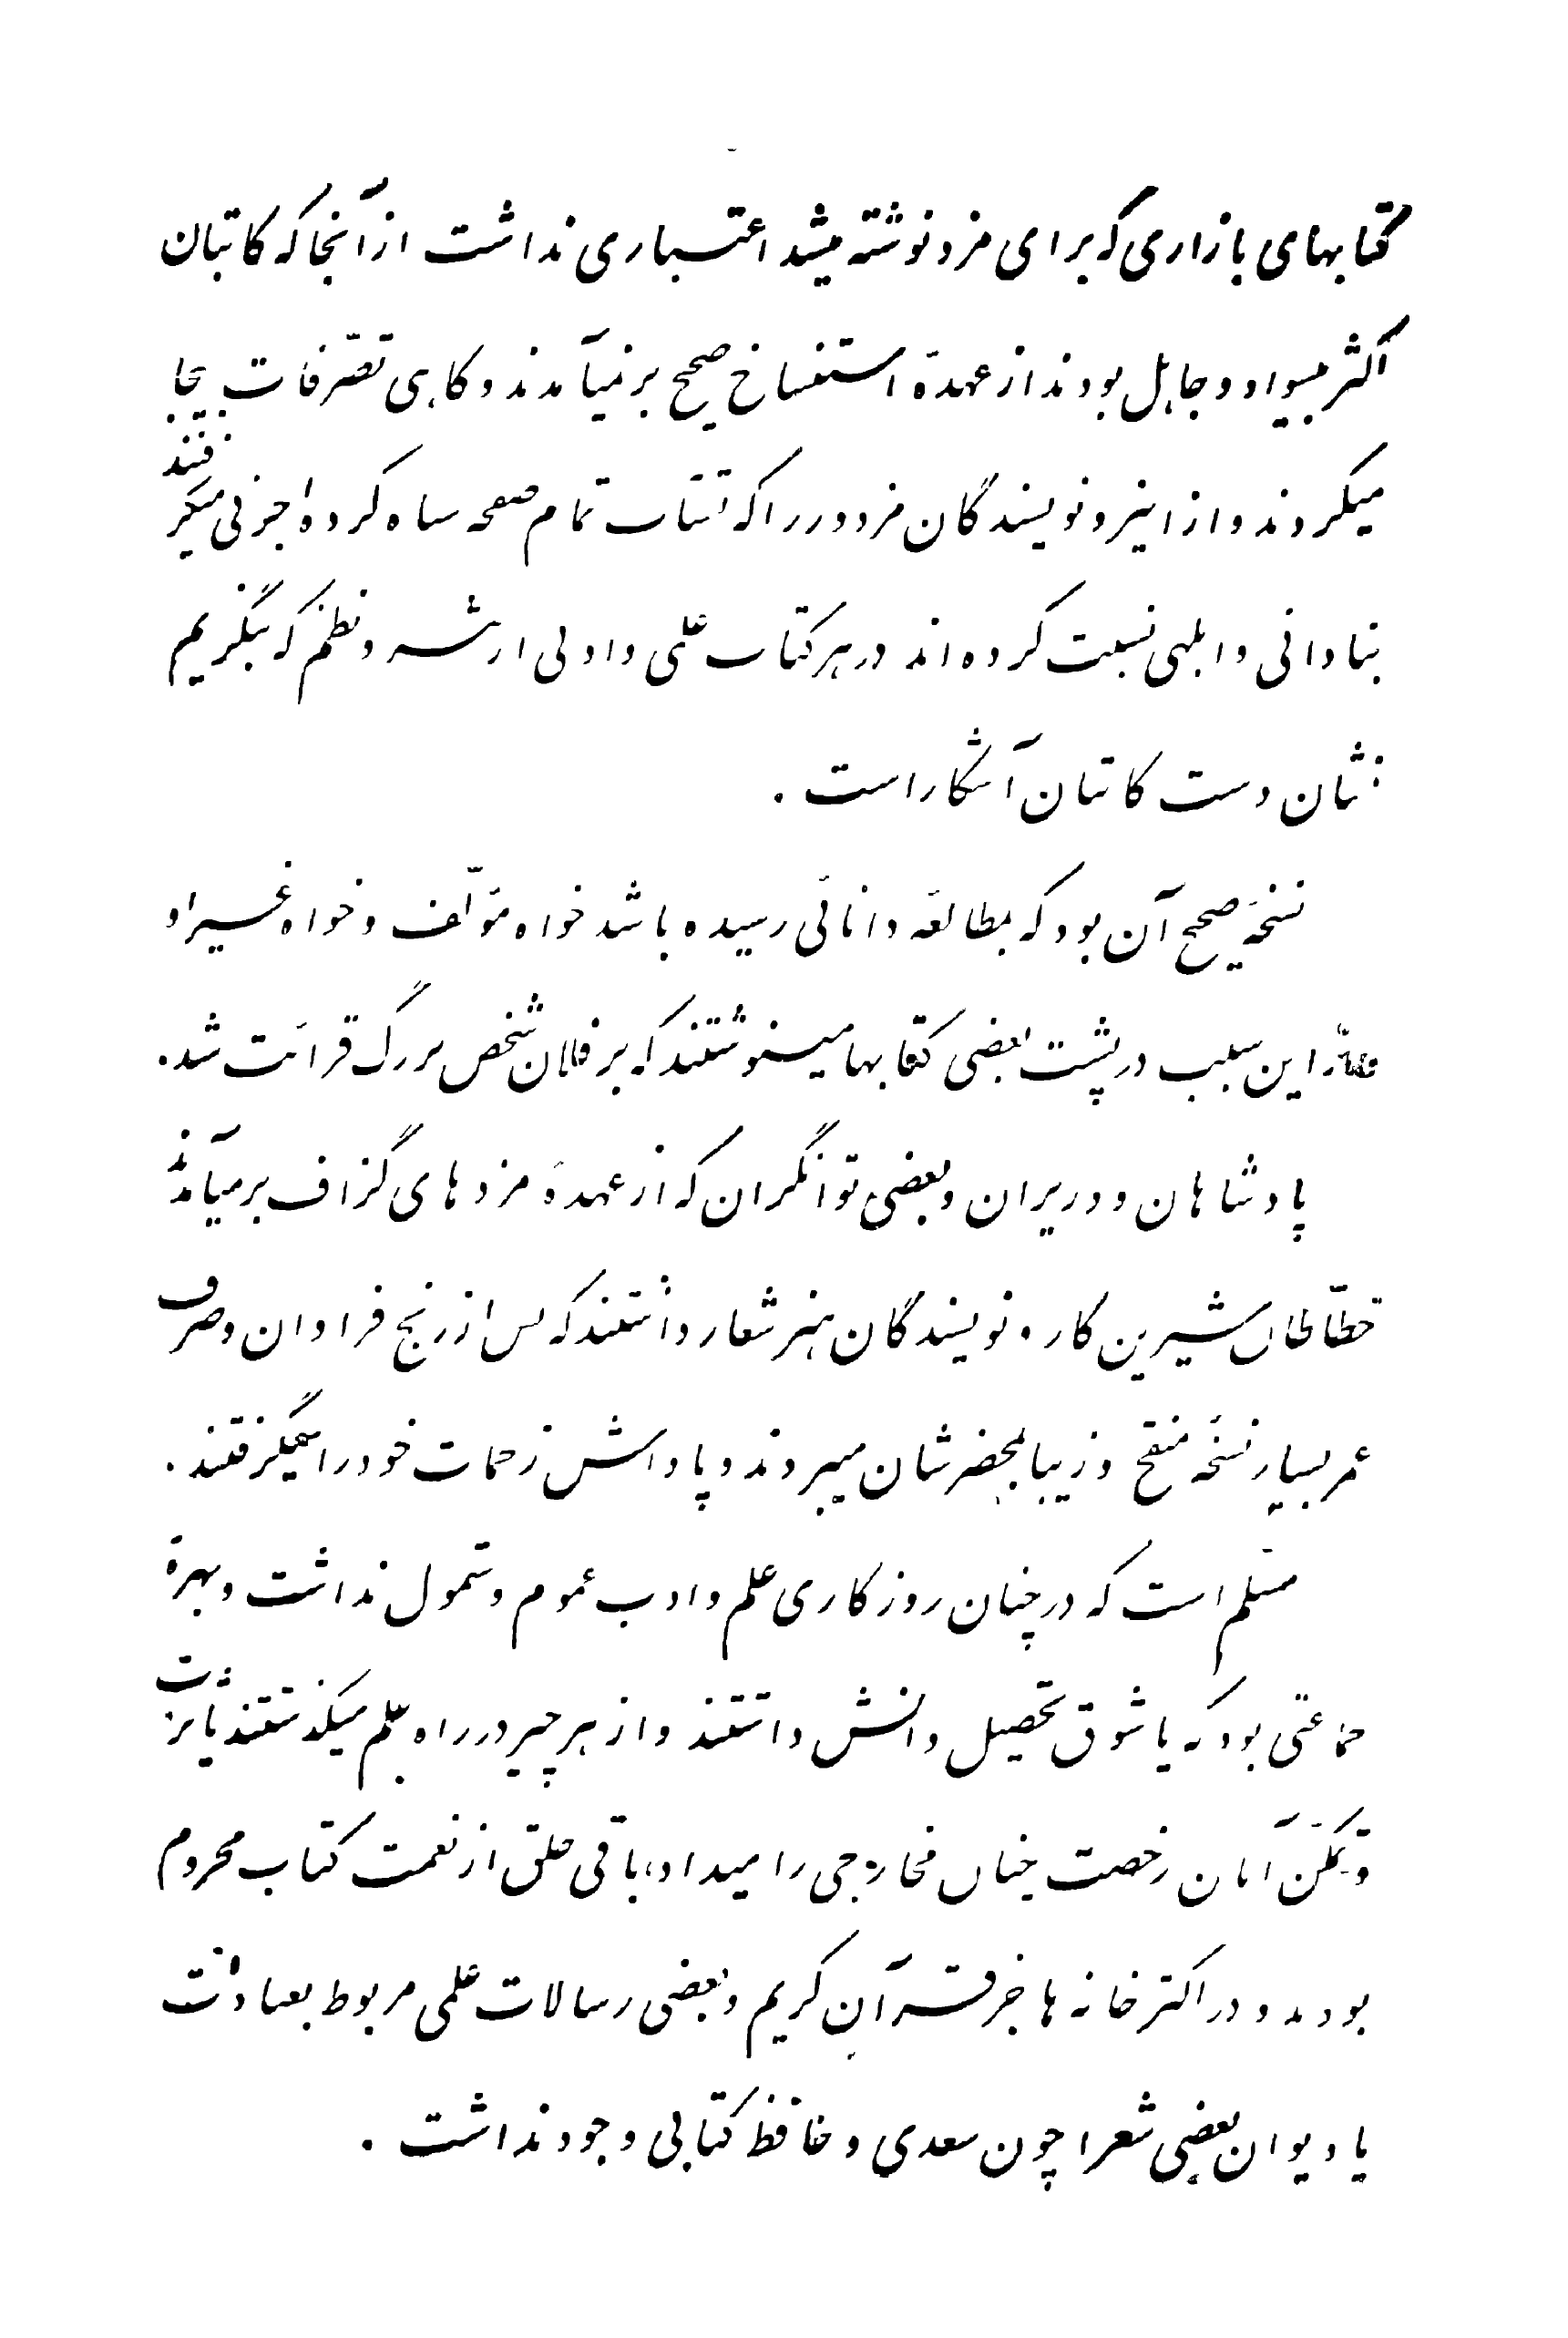 کتابهای بازاری که برای مزد نوشته میشد اعتباری نداشت از آنجا که کاتبان
اکثر بیسواد و جاهل بودند از عهدهٔ استنساخ صحیح بر نمیآمدند و گاهی تصّرفات بیجا
میکردند و از اینرو نویسندگان مزدور را که شتاب تمام صفحه سیاه کرده اجرتی میگرفتند
بنادانی و ابلهی نسبت کرده‌اند در هر کتاب علمی و ادبی از نثر و نظم که بنگریم
نشان دست کاتبان آشکار است .
نسخهٔ صحیح آن بود که بمطالعهٔ دانائی رسیده باشد خواه مؤلّف و خواه غیر او
این سبب در پشت بعضی کتابها مینوشتند که بر فلان شخص بزرگ قرائت شد .
پادشاهان و وزیران و بعضی توانگران که از عهدهٔ مزدهای گزاف برمیآمدند
خطّاطان شیرین کار و نویسندگان هنر شعار داشتند که پس از رنج فراوان و صرف
عمر بسیار نسخهٔ منقح و زیبا بمحضرشان میبردند و پاداش زحمات خود را میگرفتند .
مسّلم است که در چنان روزگاری علم و ادب عموم و شمول نداشت و بهرهٔ
جماعتی بود که یا شوق تحصیل دانش داشتند و از هر چیز در راه علم میگذشتند یا ثروت
و تمکّن آنان رخصت چنان مخارجی را میداد، باقی خلق از نعمت کتاب محروم
بودند و در اکثر خانه ها جز قرآن کریم و بعضی رسالات علمی مربوط بعبادات
یا دیوان بعضی شعرا چون سعدی و حافظ کتابی وجود نداشت .